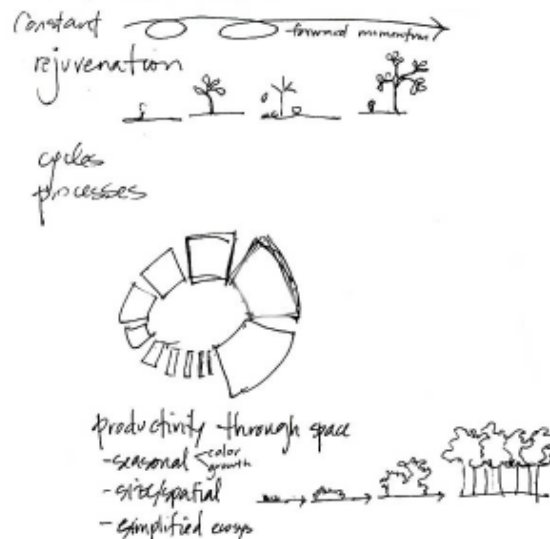 Constant
forward momentum
rejuvenation
cycles
processes
productivity through space
- seasonal < color
growth
- size/spatial
- simplified ecosys